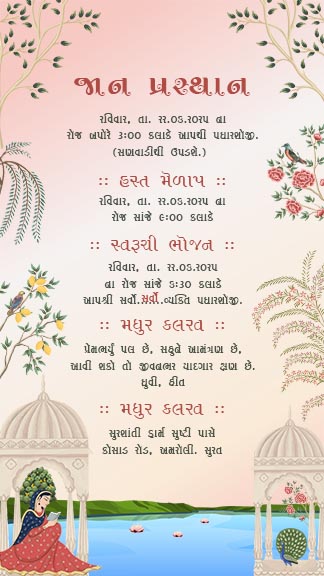 જાન પ્રસ્થાન
રવિવાર, તા. ૨૨.૦૬.૨૦૨૫ ના
રોજ બપોરે ૩:૦૦ કલાકે આપશ્રી પધારશોજી.
(સણવાડીથી ઉપડશે.)
:: હસ્ત મેળાપ ::
રવિવાર, તા. ૨૨.૦૬.૨૦૨૫ ના
રોજ સાંજે ૬:૦૦ કલાકે
:: સ્વરૂચી ભોજન ::
રવિવાર, તા. ૨૨.૦૬.૨૦૨૫
ના રોજ સાંજે ૬:૩૦ કલાકે
આપશ્રી સર્વો..વ્યક્તિ પધારશોજી.
:: મધુર કલરવ ::
પ્રેમભર્યું પલ છે, સહુને આમંત્રણ છે,
આવી શકો તો જીવનભર યાદગાર ક્ષણ છે.
ધુવી, હીત
:: મધુર કલરવ ::
સુરશાંતી ફાર્મ સુષ્ટી પાસે
કોસાડ રોડ, અમરોલી. સુરત